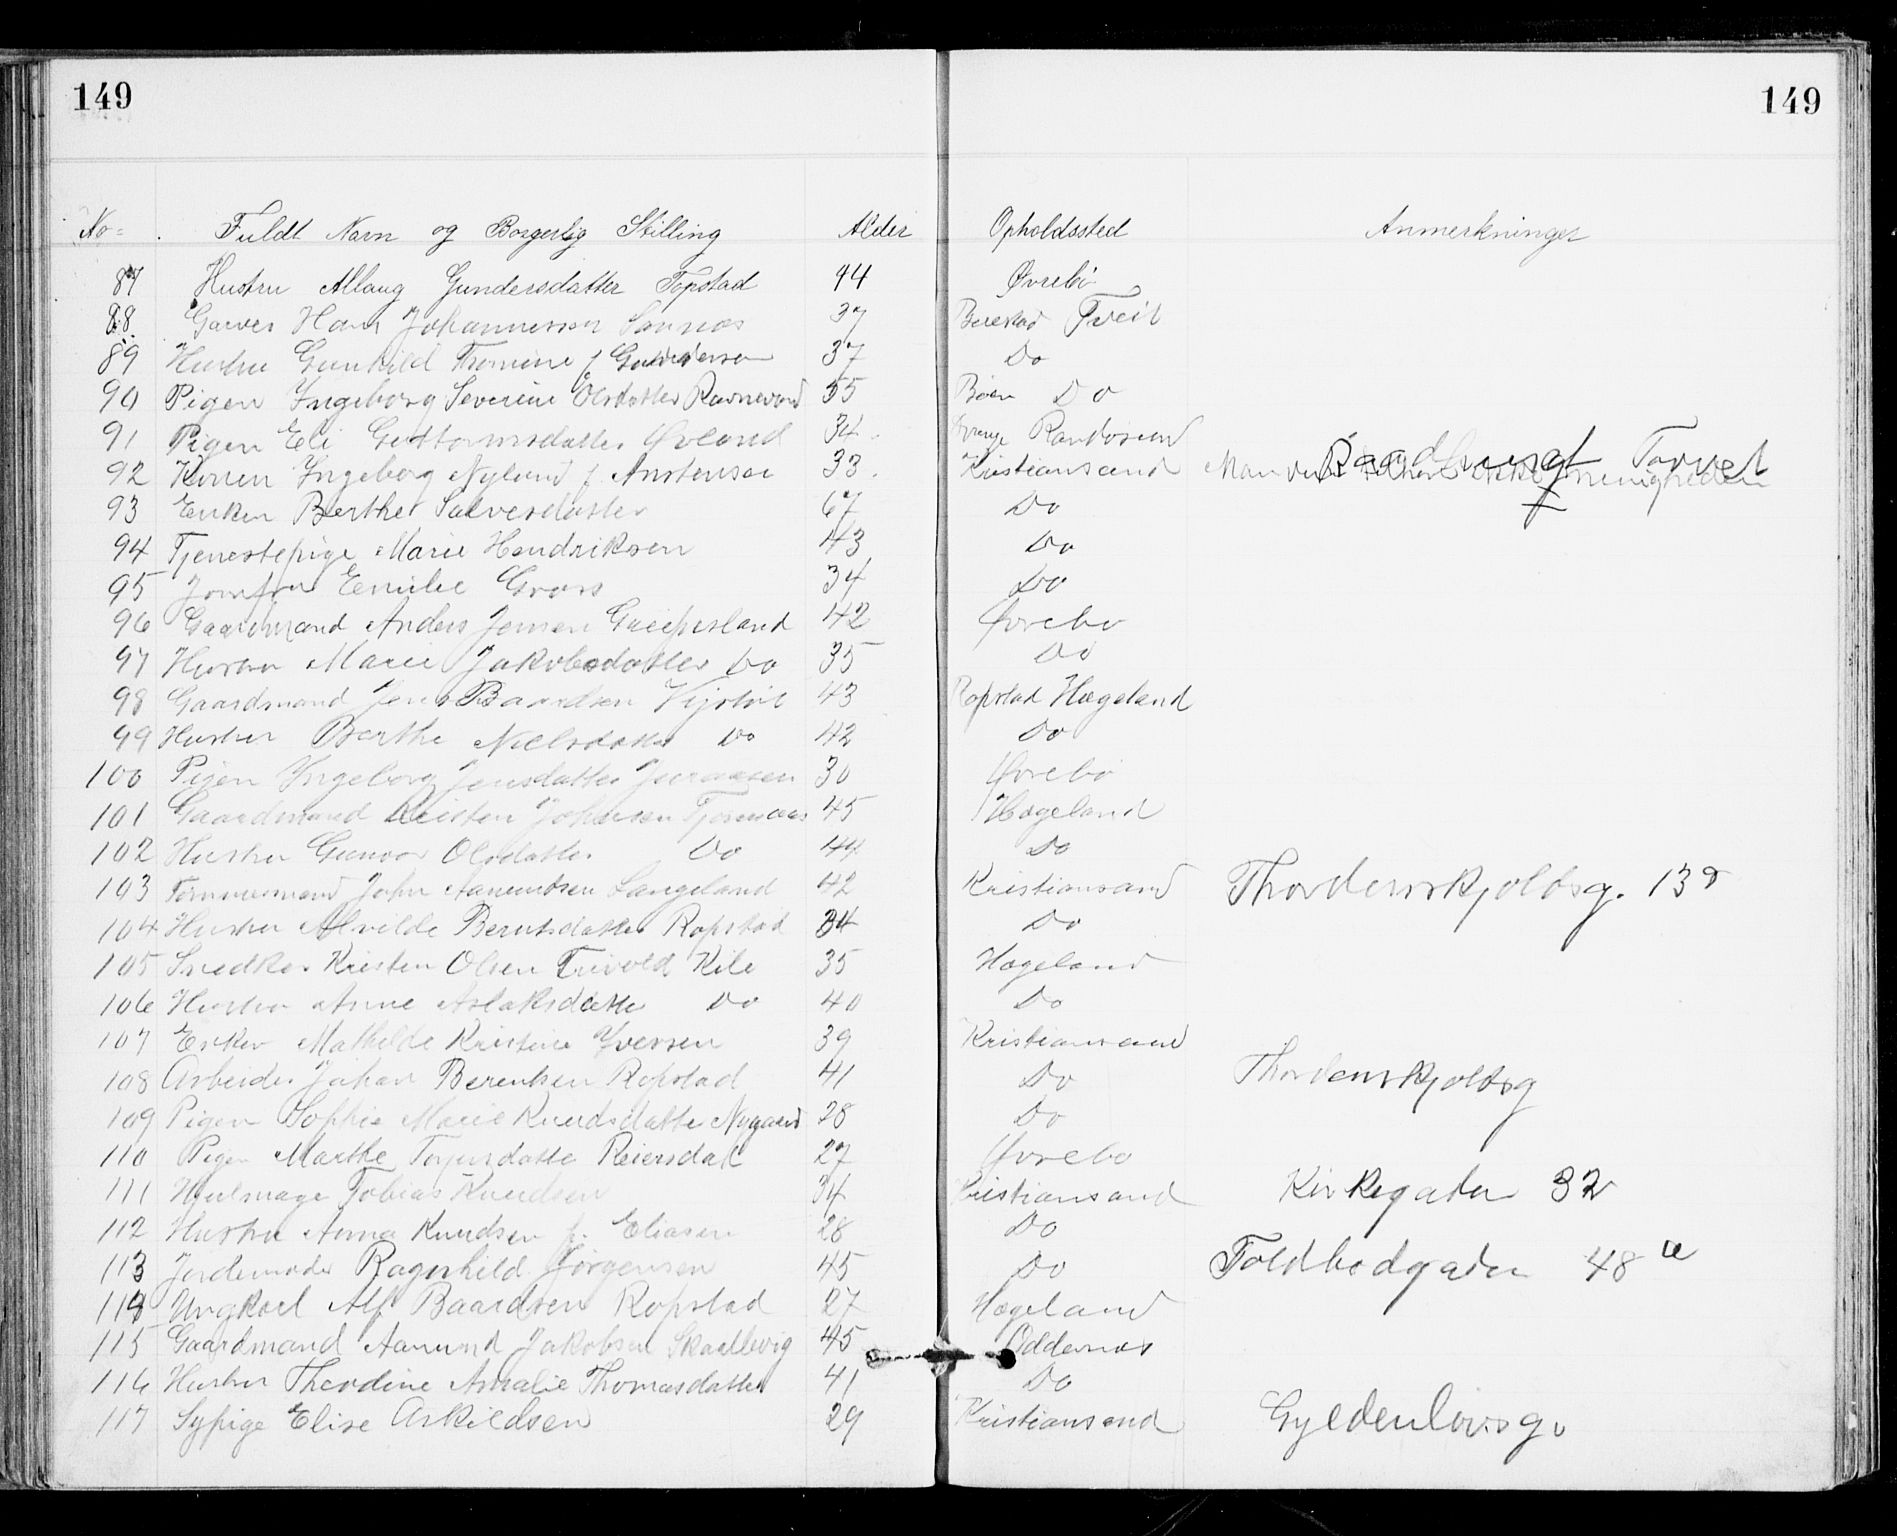 149 149
No= Fuldt Navn og Borgerlig Stilling Alder Opholdssted Anmerkninger
87 Hustru Allaug Gundersdatter Topstad 44 Øvrebö
88 Garver Hans Johannessen 37 Tveit
89 Hustru Gunhild Tomine f Gundersen 37 Do
90 Pigen Ingeborg Severine Olsdatter Ravnevand 55 Böen Do
91 Pigen Eli Guttormsdatter Øvland 34 Randösund
92 Konen Ingeborg Nylund f. Anstensen 33 Kristiansand Torvet
93 Enken Berthe Salvesdatter 67 Do
94 Tjenestepige Marie Hendriksen 43 Do
95 Jomfru Emilie Gross 34 Do
96 Gaardmand Anders Jensen Greipesland 42 Øvrebo
97 Hustru Marie Jakobsdatter Do 35 Do
98 Gaardmand Jens Baardsen 43 Ropstad Hægeland
99 Hustru Berthe Nielsdatter Do 42 Do
100 Pigen Ingeborg Jensdatter 30 Øvrebö
101 Gaardmand Kristen Johnsen 45 Hægeland
102 Hustru Gunvor Olsdatter Do 44 Do
103 Tømmermand John Aanundsen Langeland 42 Kristiansand Thordenskjoldsg. 13
104 Hustru Alvilde Berntsdatter Ropstad 34 Do
105 Snedker Kristen Olsen Kile 35 Hægeland
106 Hustru Anne Aslaksdatter Do 40 Do
107 Enken Mathilde Kristine Iversen 39 Kristiansand
108 Arbeider Johan Berentsen Ropstad 41 Do Thordenskjoldsg
109 Pigen Sophie Marie Knudsdatter Nygaard 28 Do
110 Pigen Marthe Torjusdatter Reiersdal 27 Øvrebo
111 Hjulmager Tobias Knudsen 34 Kristiansand Kirkegaden 32
112 Hustru Anna Knudsen f. Eliasen 28 Do
113 Jordemoder Ragnhild Jörgensen 45 Do Toldbodgaden 48 a
114 Ungkarl Alf Baardsen Ropstad 27 Hægeland
115 Gaardmand Aanund Jakobsen Skaallevig 45 Oddernes
116 Hustru Theodine Amalie Thomasdatter 41 Do
117 Sypige Elise Askildsen 29 Kristiansand Gyldenlövsg.